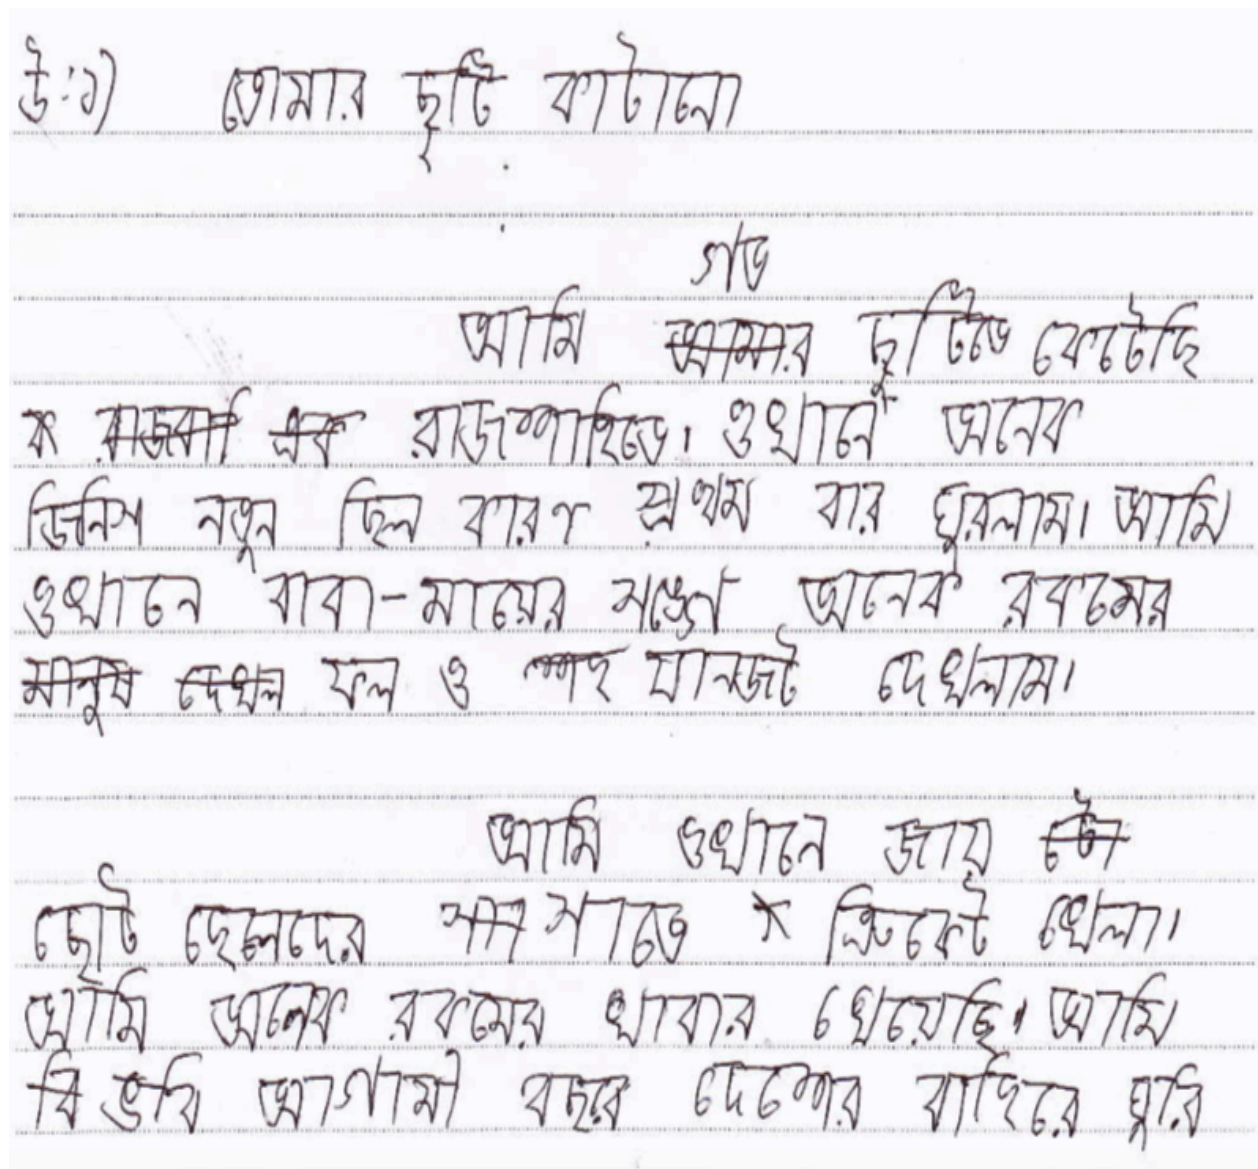 উঃ১) তোমার ছুটি কাটানো
গত
আমি আমার ছুটিতে কেটেছি
ক রাজবা এক রাজশাহিতে। ওখানে অনেক
জিনিশ নতুন ছিল কারণ প্রথম বার ঘুরলাম। আমি
ওখানে বাবা-মায়ের সঙ্গে অনেক রকমের
মানুষ দেখল ফল ও যানজট দেখলাম।
আমি ওখানে জায়
ছোট ছেলেদের সাতে ক্রিকেট খেলা।
আমি অনেক রকমের খাবার খেয়েছি। আমি
বি ভবি আগামী বছর দেশের বাহিরে ঘুরি